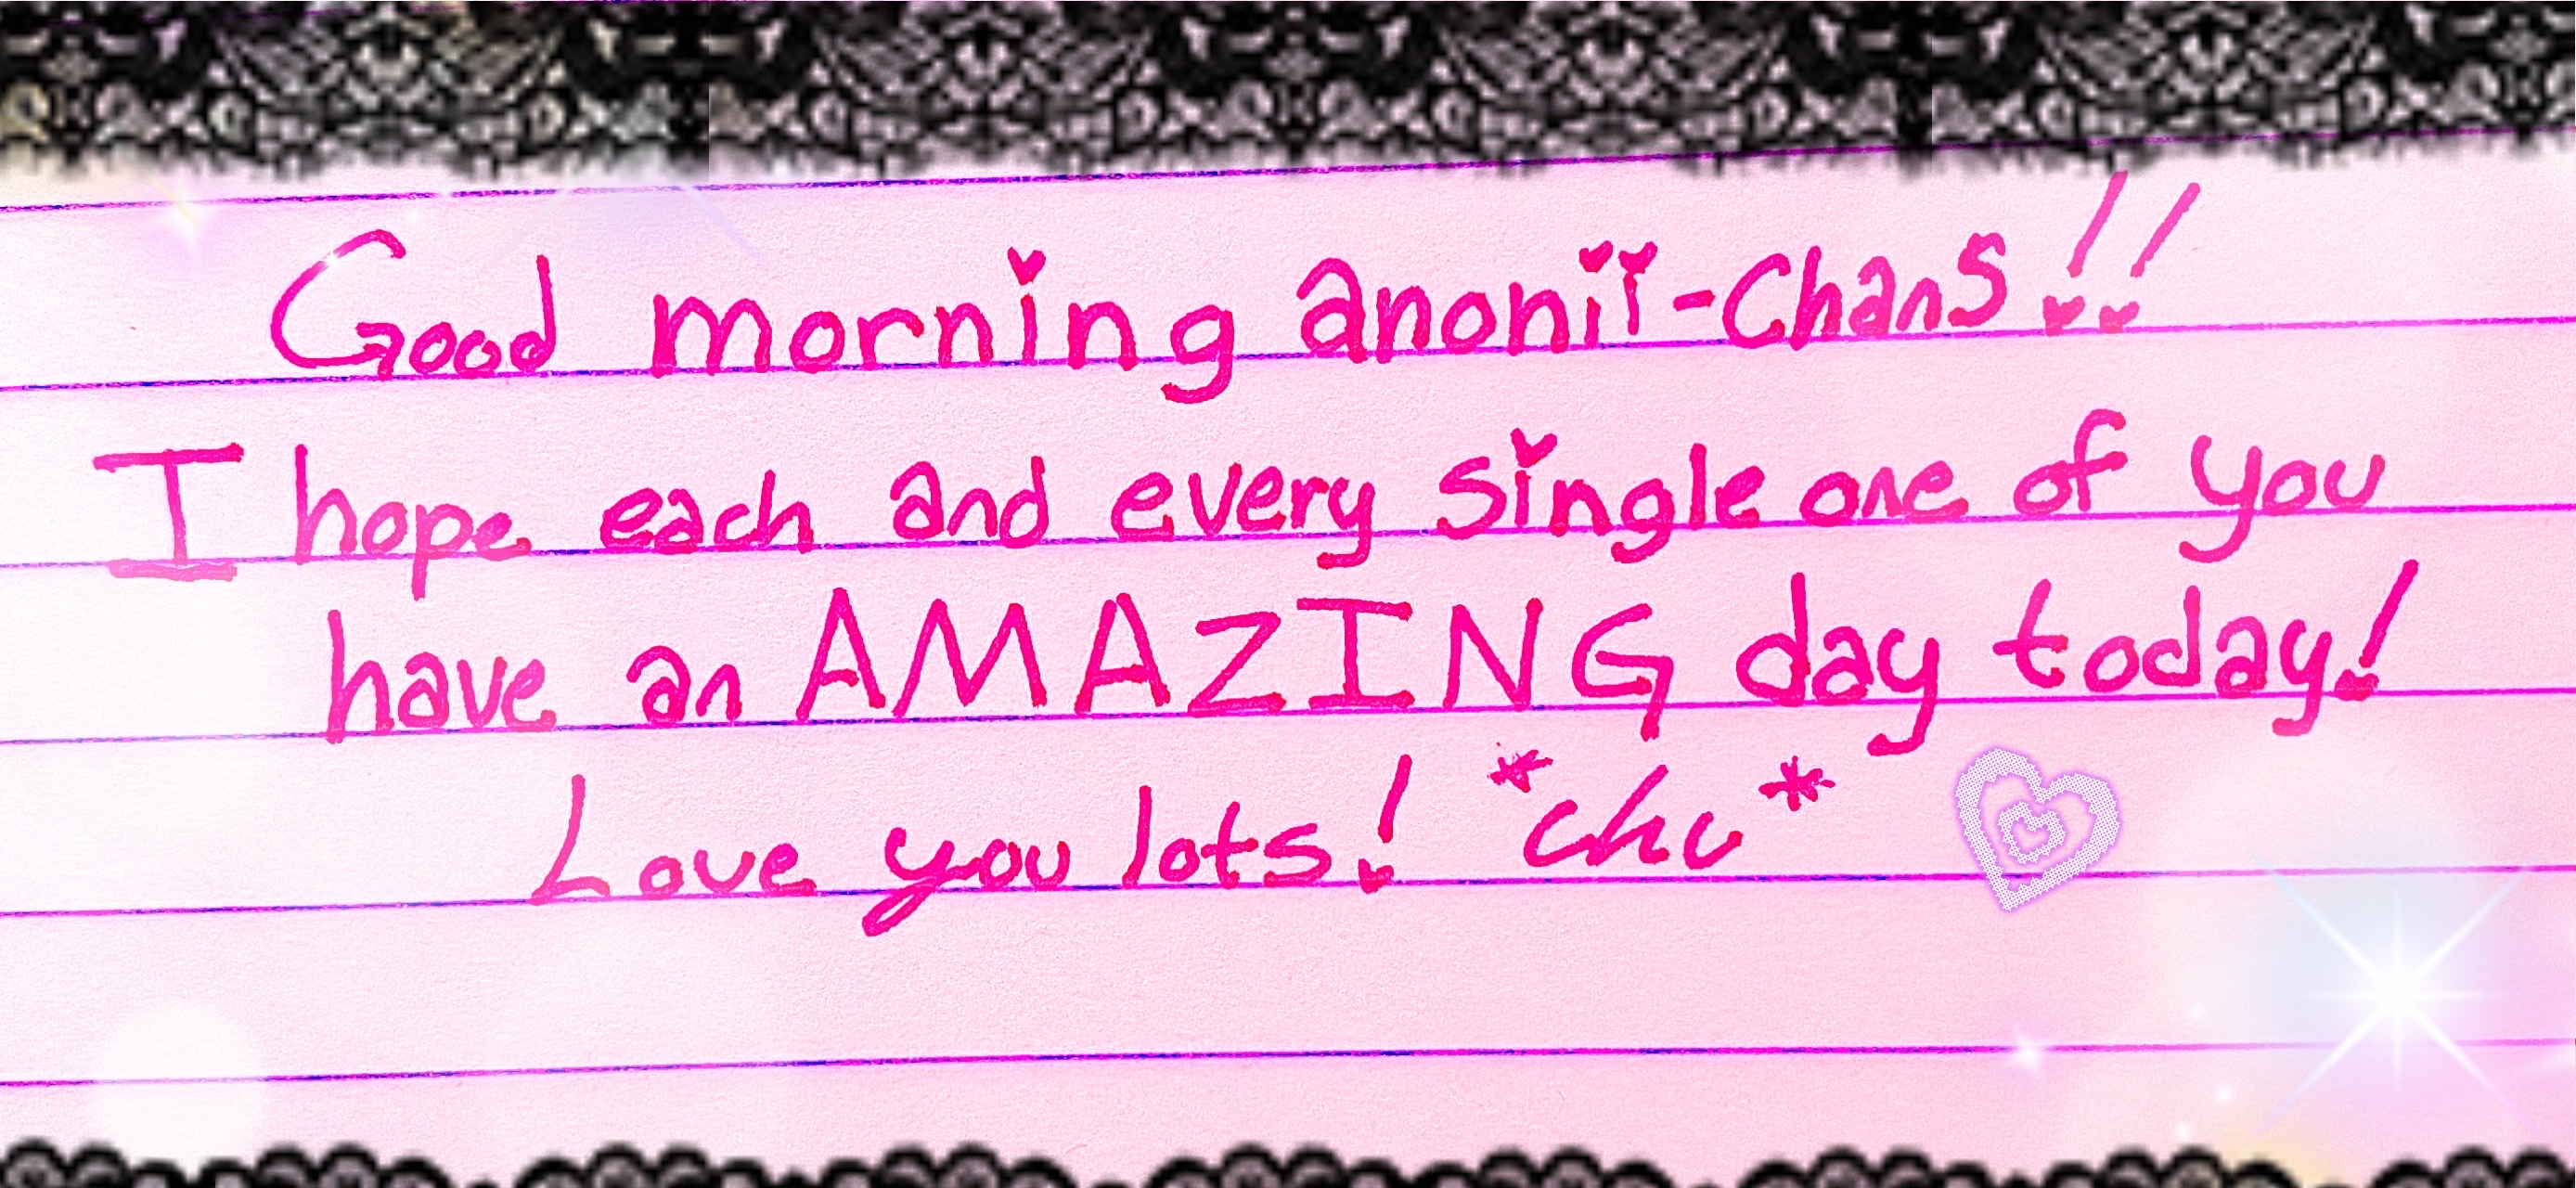 Good morning anonii-chans!!
I hope each and every single one of you
have an AMAZING day today!
Love you lots! *chu*